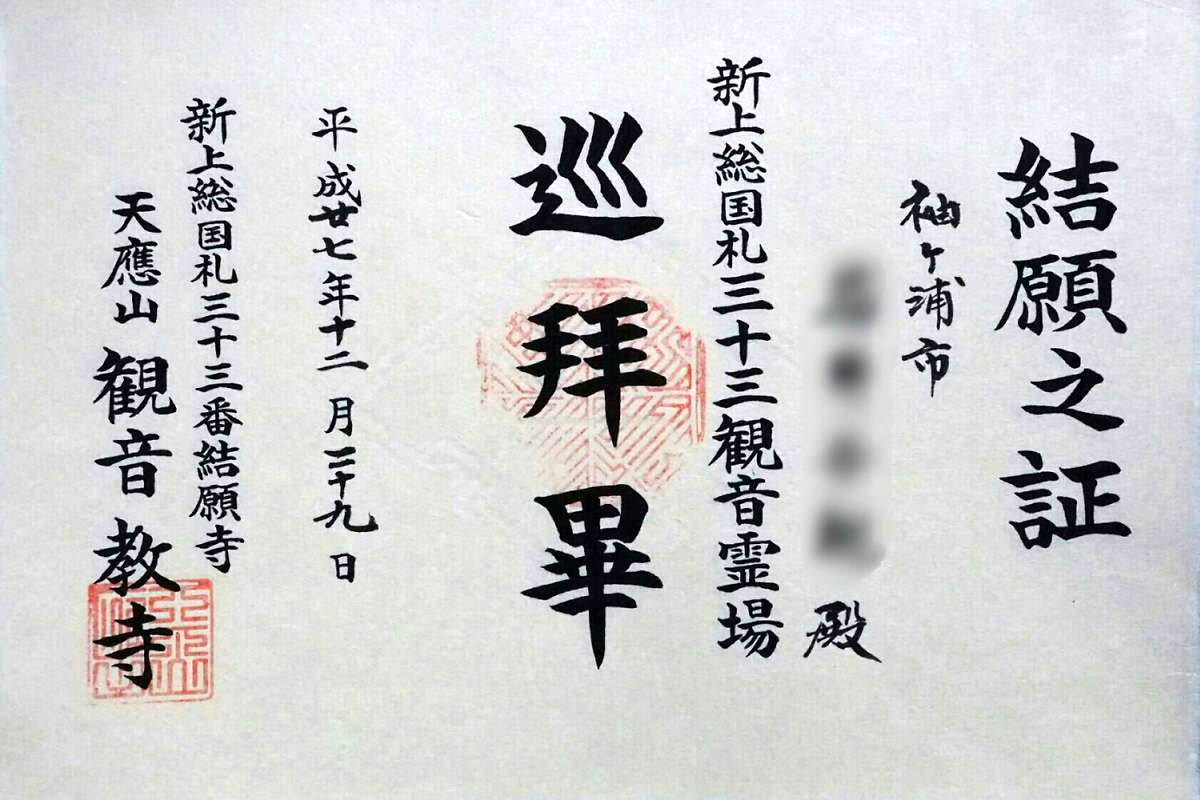 結願之証
袖ヶ浦市
殿
新上総国札三十三観音霊場
巡拝畢
平成廿七年十二月二十九日
新上総国札三十三番結願寺
天應山 観音教寺